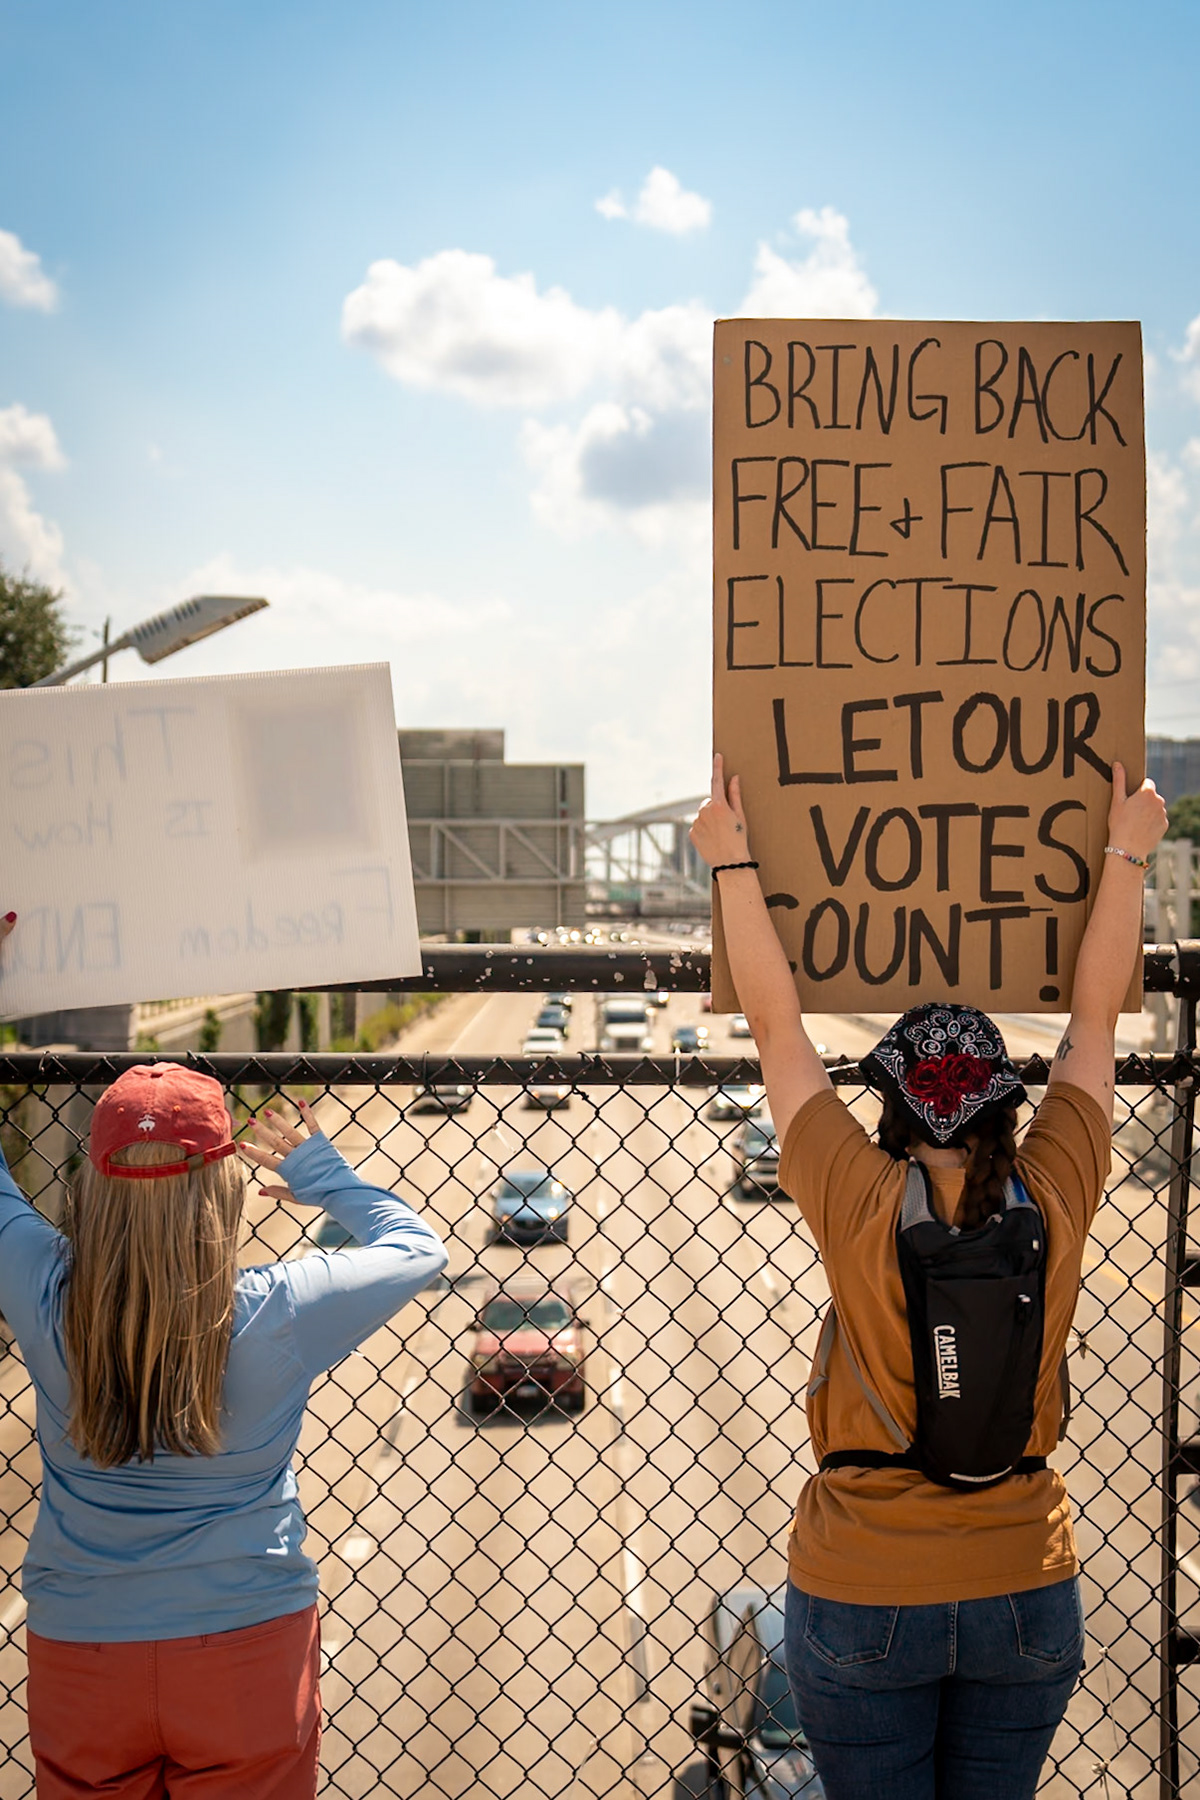 BRING BACK
FREE & FAIR
ELECTIONS
LET OUR
VOTES
COUNT!
This
IS How
Freedom END
CAMELBAK